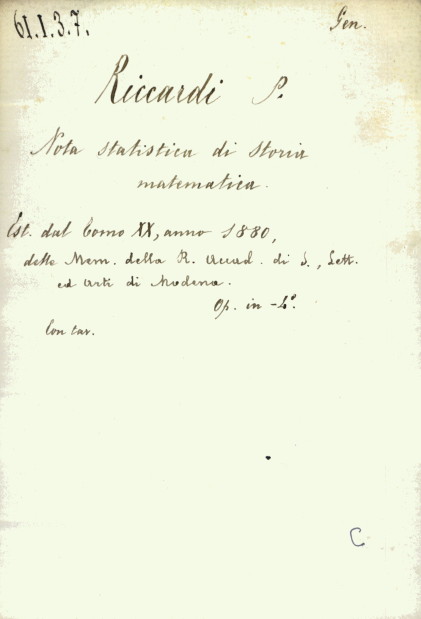 61.1.3.7.
Gen.
Riccardi P.
Nota statistica di storia
matematica.
Est. dal Tomo XX, anno 1880,
delle Mem. della R. Accad. di S., Lett.
ed Arti di Modena.
Op. in -4º.
Con tav.
C